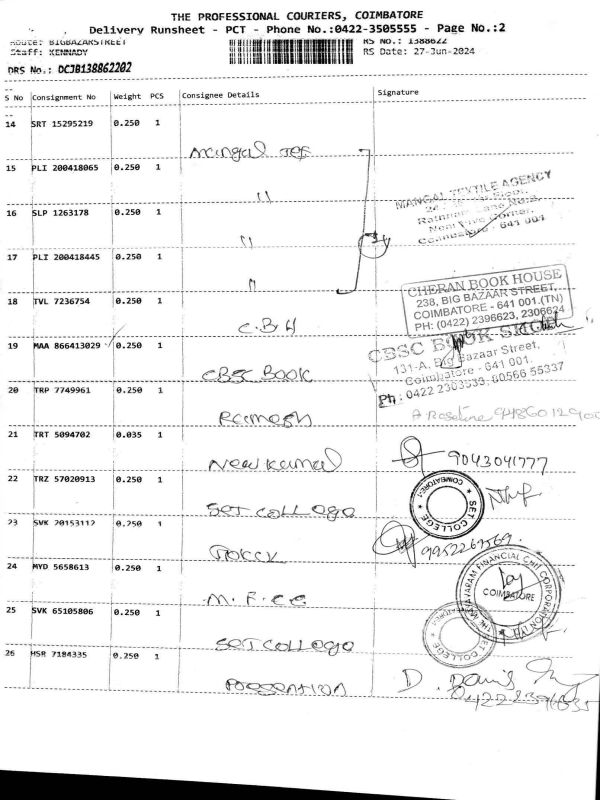 THE PROFESSIONAL COURIERS, COIMBATORE
Delivery Runsheet - PCT - Phone No.:0422-3505555 - Page No.:2
Route: BIGBAZARSTREET
RS No.: 1388622
Staff: KENNADY
RS Date: 27-Jun-2024
DRS No.: DCJB138862202
S No Consignment No Weight PCS Consignee Details Signature
14 SRT 15295219 0.250 1
Mangal Tex
15 PLI 200418065 0.250 1
"
MANGAL TEXTILE AGENCY
16 SLP 1263178 0.250 1
"
Coimbatore - 641 001
17 PLI 200418445 0.250 1
"
CHERAN BOOK HOUSE
238, BIG BAZAAR STREET,
COIMBATORE - 641 001.(TN)
PH: (0422) 2396623, 2306624
18 TVL 7236754 0.250 1
C.B.H
CBSC BOOK
131-A, Big Bazaar Street,
Coimbatore - 641 001.
Ph: 0422 80566 55337
19 MAA 866413029 0.250 1
CBSC BOOK
20 TRP 7749961 0.250 1
Ramesh
A Roseline
21 TRT 5094702 0.035 1
New Kamal
9043041777
22 TRZ 57020913 0.250 1
SET COLLege
SET COLLEGE
COIMBATORE-1
23 SVK 20153112 0.250 1
24 MYD 5658613 0.250 1
M.F.CC
FINANCIAL CHIT CORPORATION
COIMBATORE
25 SVK 65105806 0.250 1
SET COLLege
SET COLLEGE
26 HSR 7184335 0.250 1
D.